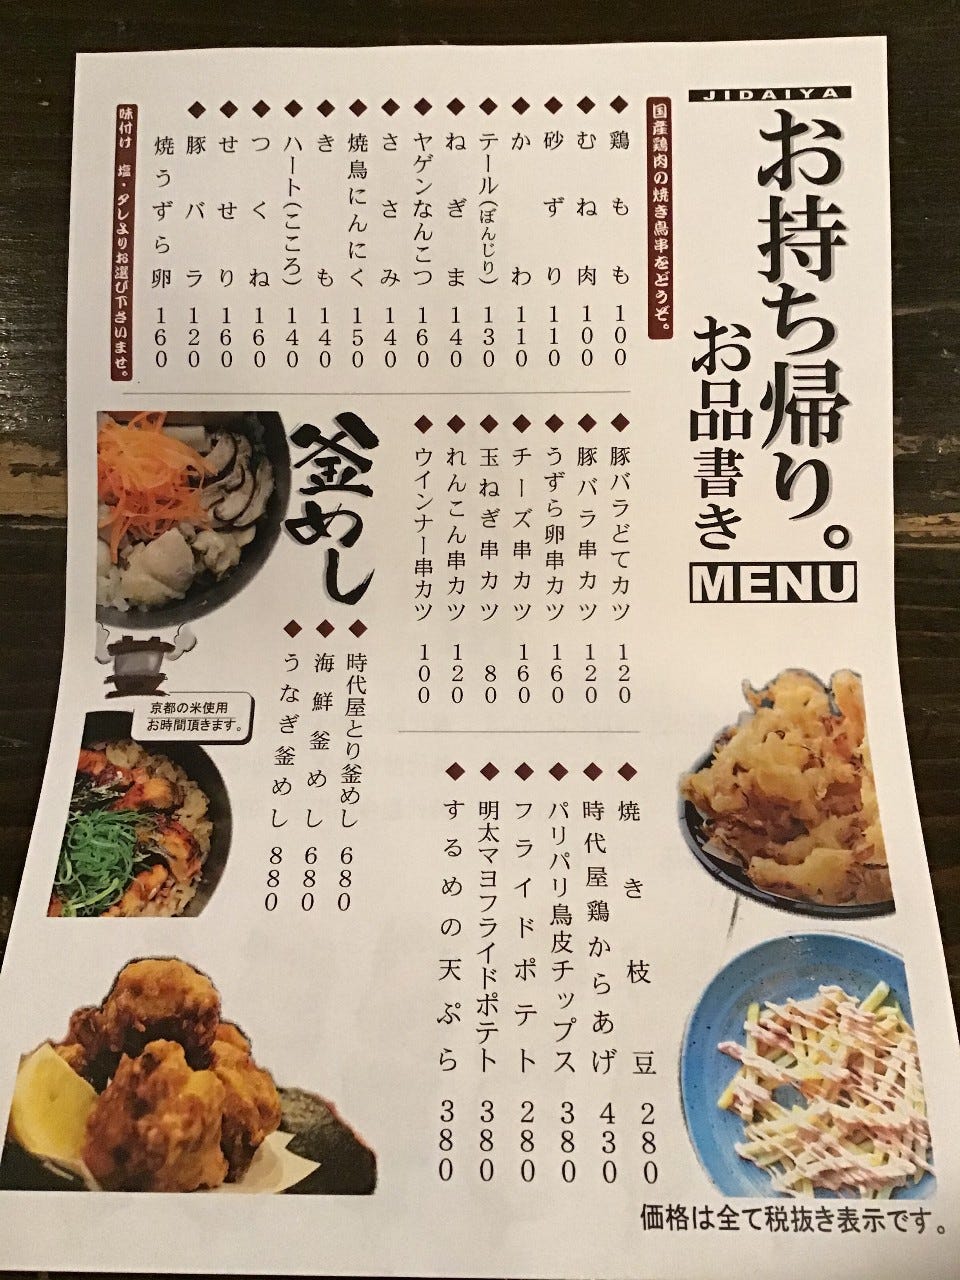 JIDAIYA
お持ち帰り。
お品書き
MENU
国産鶏肉の焼き鳥串をどうぞ。
◆鶏もも 100
◆むね肉 100
◆砂ずり 110
◆かわ 110
◆テール(ぼんじり) 130
◆ねぎま 140
◆ヤゲンなんこつ 160
◆ささみ 140
◆焼鳥にんにく 150
◆きも 140
◆ハート(こころ) 140
◆つくね 160
◆せせり 160
◆豚バラ 120
焼うずら卵 160
味付け 塩・タレよりお選び下さいませ。
◆豚バラどてカツ 120
◆豚バラ串カツ 120
◆うずら卵串カツ 160
◆チーズ串カツ 160
◆玉ねぎ串カツ 80
◆れんこん串カツ 120
◆ウインナー串カツ 100
釜めし
◆時代屋とり釜めし 680
◆海鮮釜めし 680
◆うなぎ釜めし 880
京都の米使用
お時間頂きます。
◆焼き枝豆 280
◆時代屋鶏からあげ 430
◆パリパリ鳥皮チップス 380
◆フライドポテト 280
◆明太マヨフライドポテト 380
◆するめの天ぷら 380
価格は全て税抜き表示です。